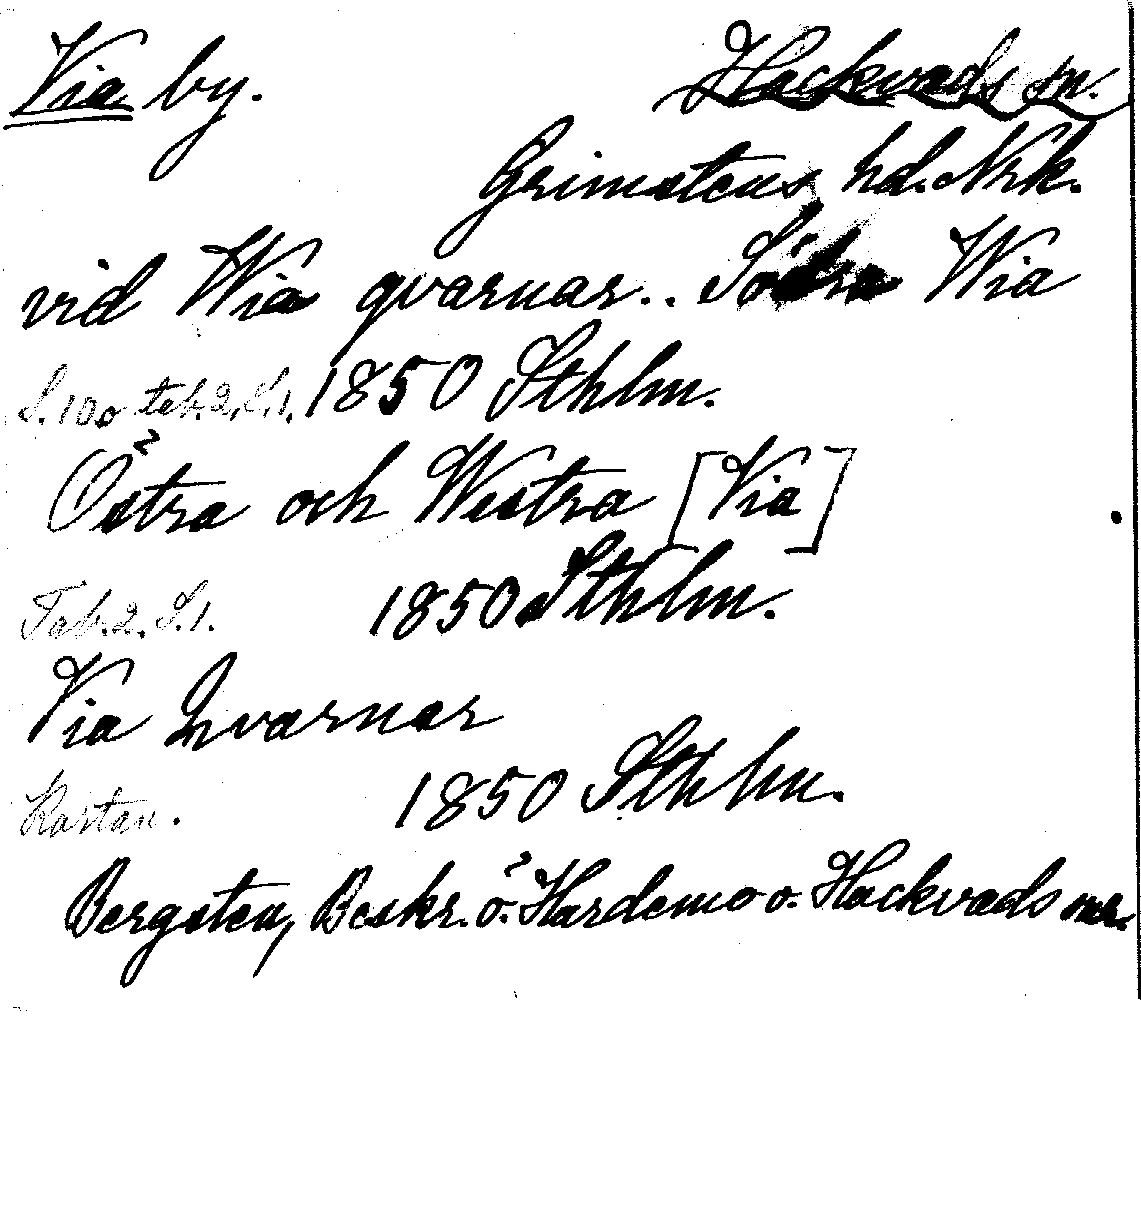 Via by. Hackvads sn.
Grimstens hd. Nrk.
vid Wia qvarnar.. Södra Wia
S. 100 tab. 2, S. 1. 1850 Sthlm.
Östra och Westra [Via]
Tab. 2. S. 1. 1850 Sthlm.
Via Qvarnar
Kartan. 1850 Sthlm.
Bergsten, Beskr. ö. Hardemo o. Hackvads snr.